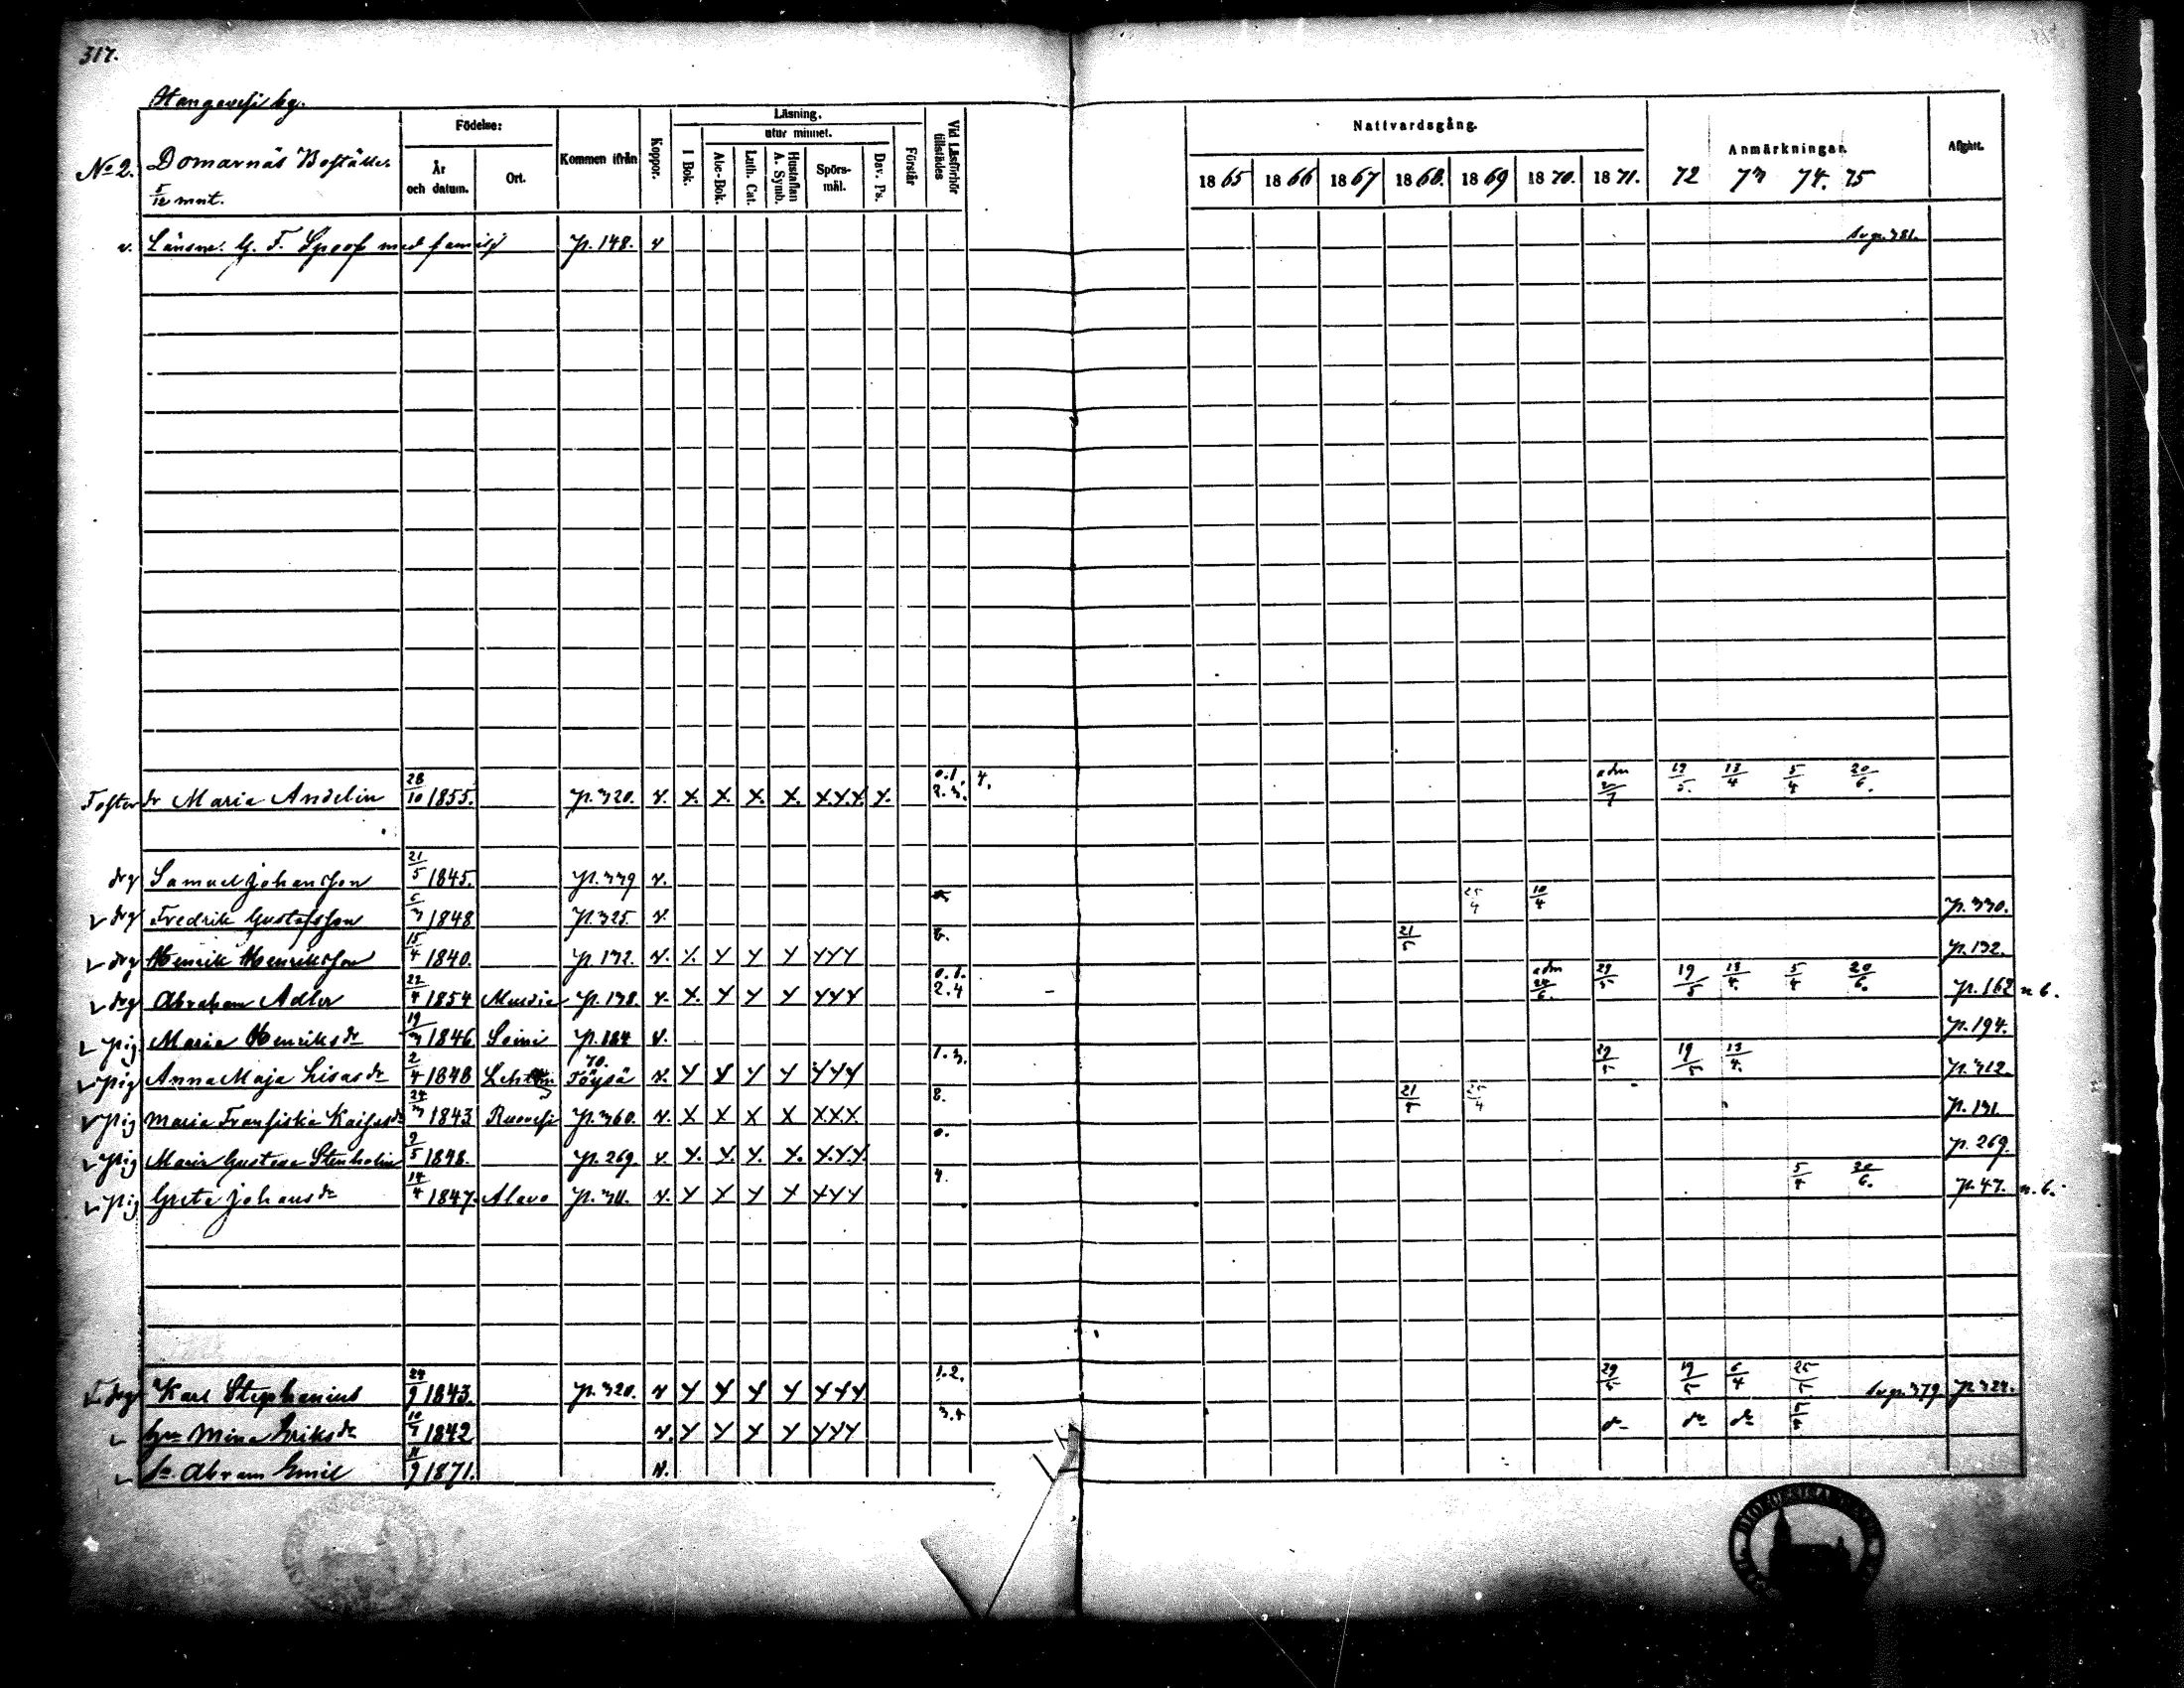 317.
Hangavesi by.
Födelse: Läsning. Nattvardsgång. Anmärkningar. Afgått.
utur minnet.
No 2. Domarnäs Boställe. År och datum. Ort. Kommen ifrån Koppor. I Bok. Abc-Bok. Luth. Cat. Hustaflan A. Symb. Spörs-mål. Dav. Ps. Förstår Vid Läsförhör tillstädes 1865 1866 1867 1868. 1869 1870. 1871. 72 73 74. 75
5/12 mnt.
v. Länsm. G. F. Spoof med familj p. 148. v
Foster dr Maria Andelin 28/10 1855. p. 320. v. X. X. X. X. X.X.X. X. 0.1. 2.3. 4. adm 2/7 19/5. 13/4 5/4 20/6.
drg Samuel Johansson 21/5 1845. p. 339 v.
v drg Fredrik Gustafsson 6/3 1848 p. 325. v. 25/4 10/4 p. 330.
v drg Henrik Henriksson 15/4 1840. p. 132. v. X. X X X XXX 8. 21/5 p. 132.
v drg Abraham Adler 22/4 1854 p. 138. v. X. X X X XXX 0.1. 2.4 adm 24/6. 29/5 19/5 13/4. 5/4 20/6. p. 162 n 6.
v pig Maria Henriksdr 19/3 1846 p. 184 v. p. 194.
v pig Anna Maja Lisasdr 2/4 1848 70. Töysä v. X X X X XXX 1.3. 29/5 19/5 13/4. p. 312.
v pig Maria Fransiska Kaisasdr 24/3 1843 Ruovesi p. 360. v. X X X X XXX. 8. 21/5 25/4 p. 131
v pig Maria Gustava Stenholm 9/5 1848. p. 269. v. X. X. X. X. X.X.X. 0. p. 269.
v pig Greta Johansdr 14/4 1847. Alavo p. 311. v. X X X X XXX 4. 5/4 20/6. p. 47. n. 6.
drg Karl Stephanius 24/9 1843. p. 320. v X X X X XXX 1.2. 29/5 19/5 6/4 25/5 p. 379. p. 324.
v Mina Eriksdr 10/7 1842 v. X X X X XXX 3.4 dr dr dr 5/4
v Abram Emil 11/9 1871. v.